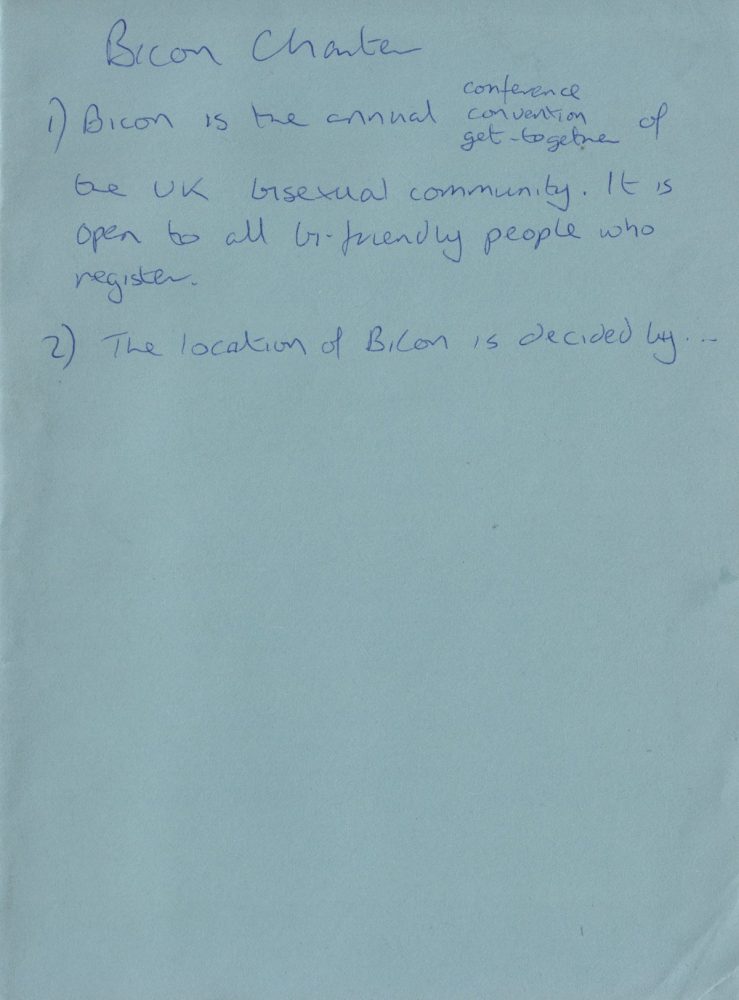 Bicon Charter
conference
1) Bicon is the annual convention of
get-together
the UK bisexual community. It is
open to all bi-friendly people who
register.
2) The location of BiCon is decided by...